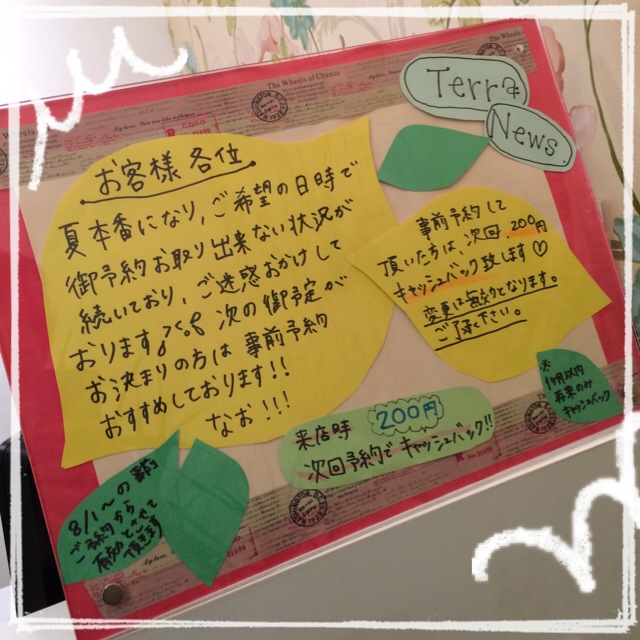 The Wheels of Chance
Terra
News
お客様各位
夏本番になり、ご希望の日時で
御予約お取り出来ない状況が
続いており、ご迷惑おかけして
おります 次の御予定が
お決まりの方は 事前予約
おすすめしております!!
なお!!!
事前予約して
頂いた方は、次回 200円
キャッシュバック致します♡
変更は無効となります。
ご了承下さい。
※
1ヶ月以内
再来のみ
キャッシュバック
来店時 200円
次回予約でキャッシュバック!!
8/1〜の
ご予約から
有効とさせて
頂きます